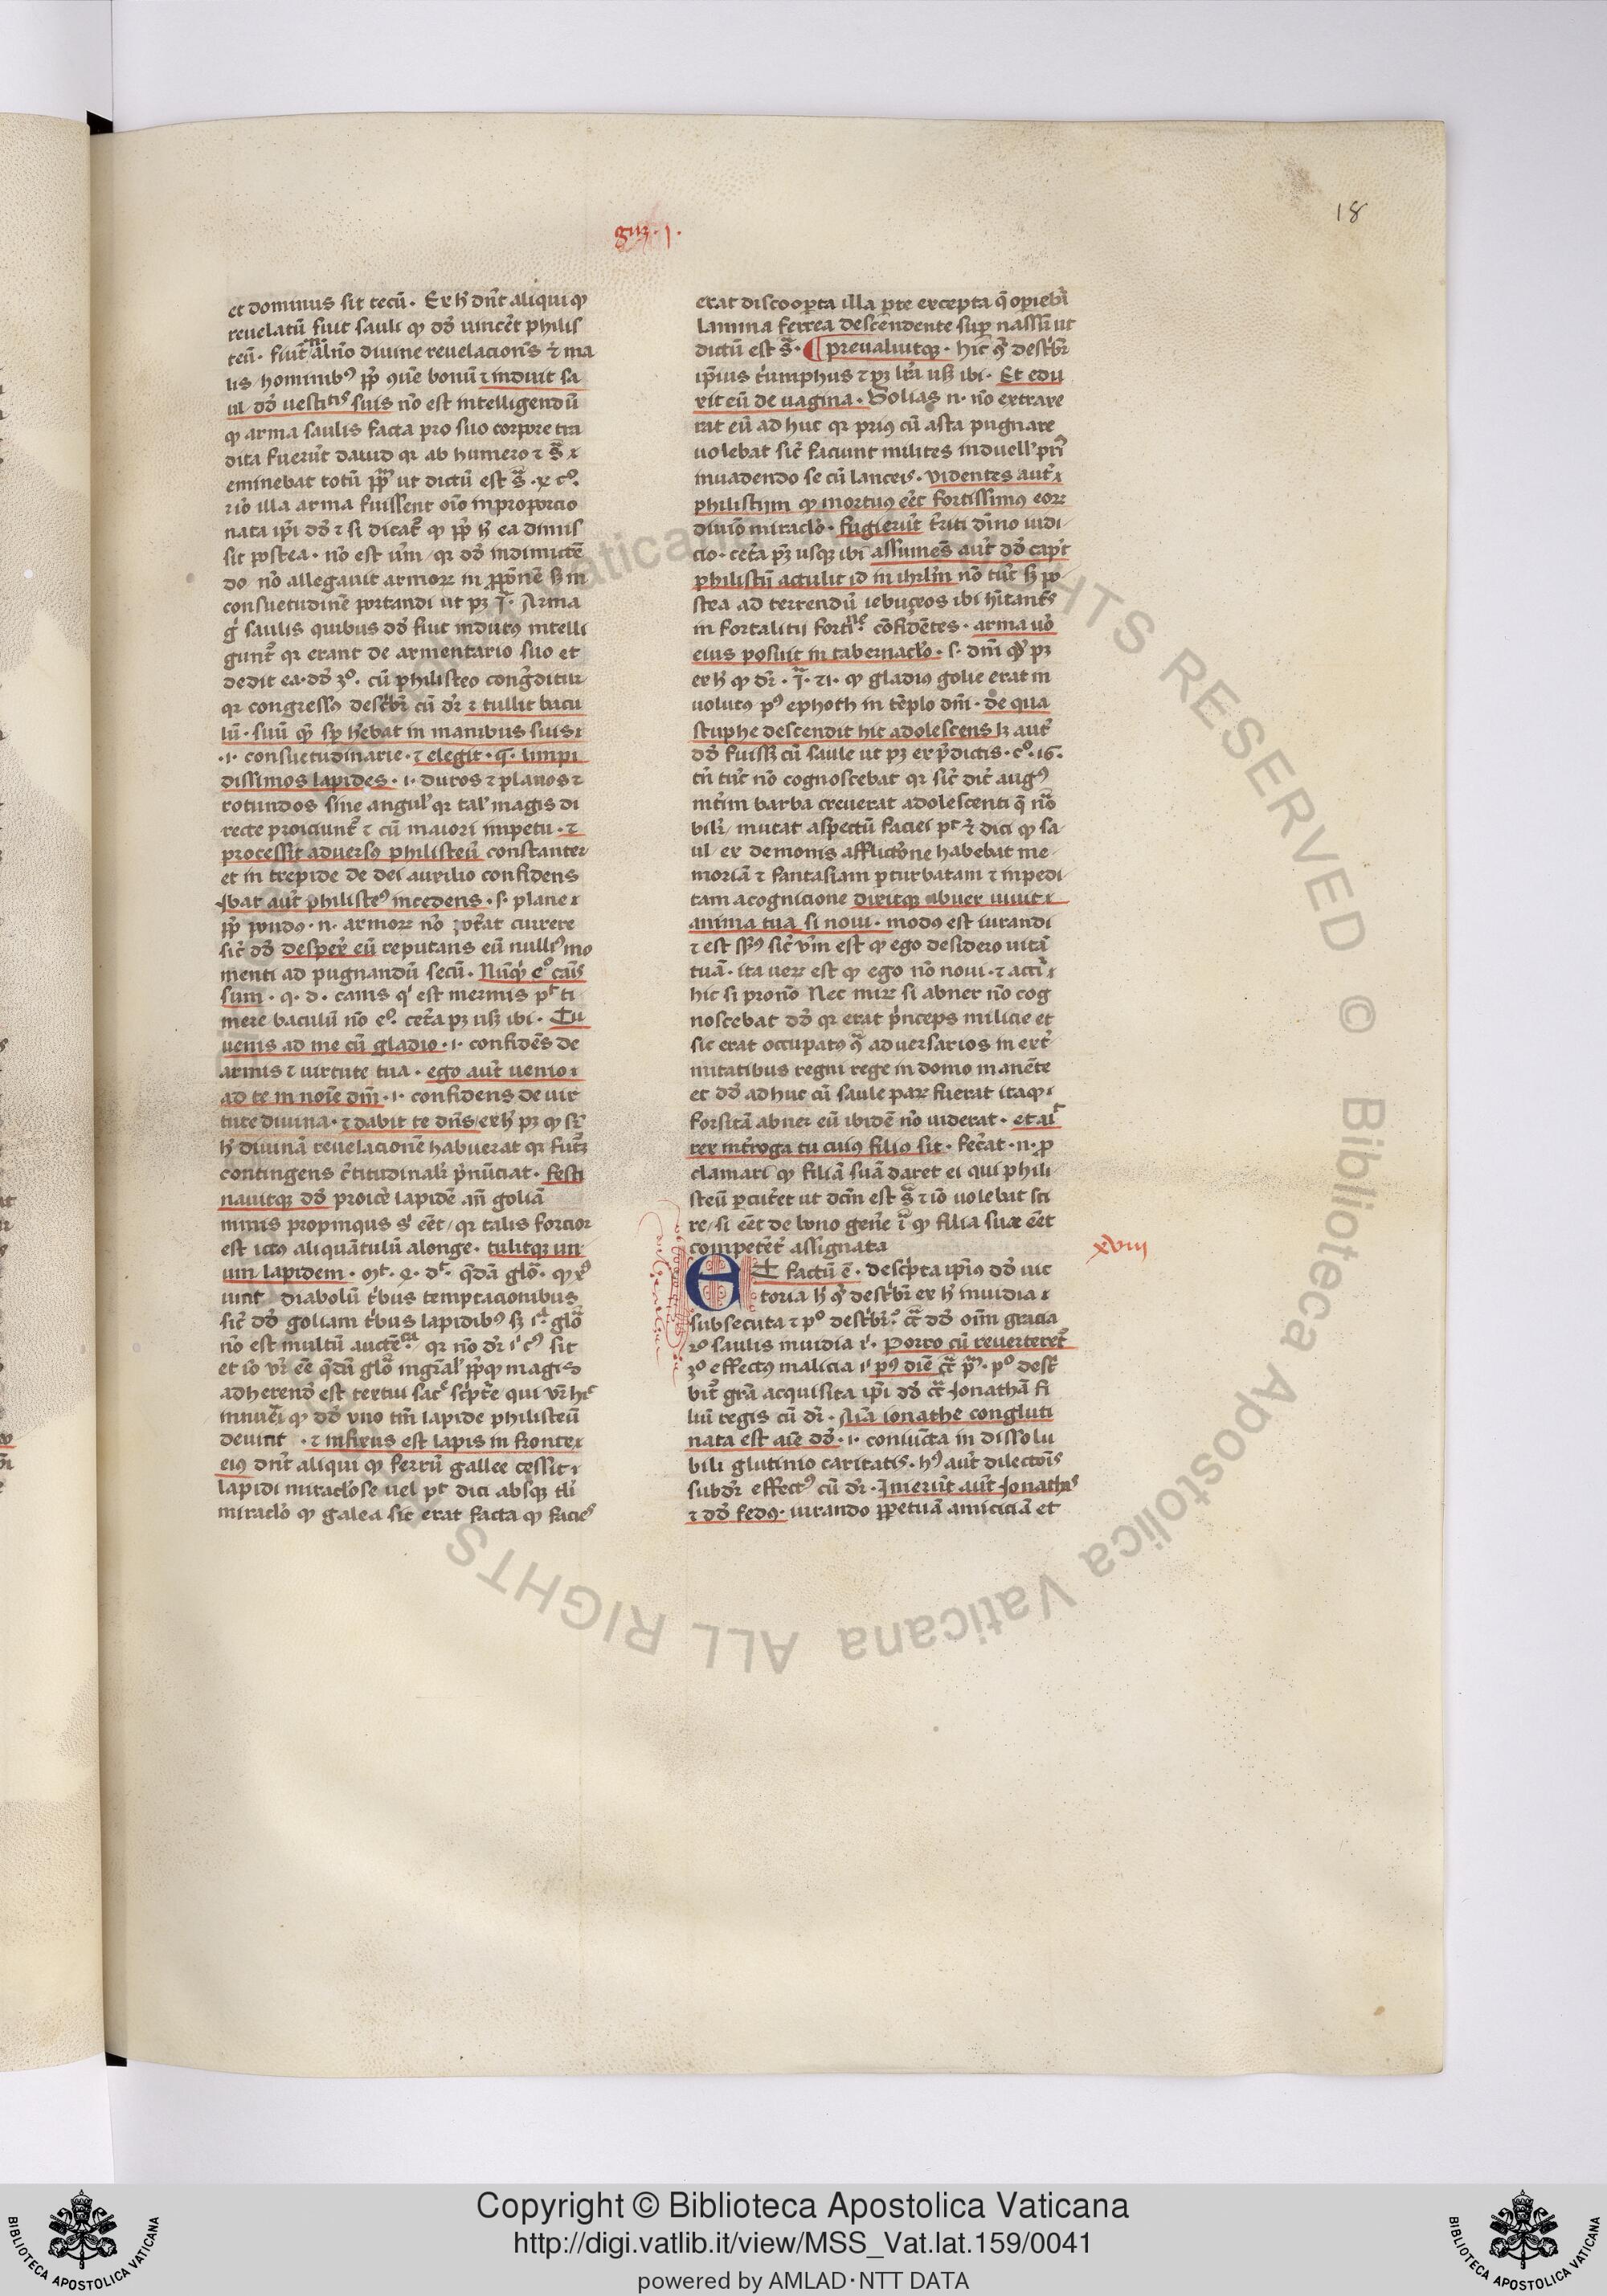 18
et dominus sit tecū. Ex hͦ dn̄t aliqui ꝙ
reuelatū fuit sauli ꝙ dd̄ uinceret philis
lis hominibꝰ
ul dd̄ uestitis suis nō est intelligendū
ꝙ arma saulis facta pro suo corpore tra
dita fuerūt dauid qr ab humero ⁊
eminebat totū pp̄l'm ut dictū est sͣ. x cͦ.
⁊ iō illa arma fuissent oīo inproporcio
nata ip̄i dd̄ ⁊ si dicat̄ ꝙ pp̄ hͦ ea dimis
sit postea. nō est uer̄ qr dd̄ in dimittē
do nō allegauit armoꝝ in ꝓporc̄onē sꝫ in
consuetudinē portandi ut pꝫ iͣ. Arma
gͦ saulis quibus dd̄ fuit indutꝰ intelli
gunt̄ qr erant de armentario suo et
dedit ea dd̄ 3ͦ. cū philisteo conḡditur
qr congressꝰ desc'bit̄ cū dr̄ ⁊ tullit bacu
lū. suū quē sp̄ hēbat in manibus suis
.i. consuetudinarie. ⁊ elegit .q. limpi
dissimos lapides. .i. duros ⁊ planos ⁊
rotundos sine angul' qr tal' magis di
recte proiciunt̄ ⁊ cū maiori impetu. ⁊
processit aduersꝰ philisteū constanter
et in trepide de dei auxilio confidens
Ibat aūt philisteꝰ incedens. s. plane
pp̄ pondꝰ .n. armoꝝ nō pot̄at currere
sic̄ dd̄ despex̄ eū reputans eū nullꝰ mo
menti ad pugnandū secū. Nūqͥd eͦ canis
sum. q. d. canis qͥ est inermis pͭ ti
mere baculū nō eͦ. cet̄a pꝫ usꝫ ibi. Tu
uenis ad me cū gladio. .i. confidēs de
armis ⁊ uirtute tua. ego aūt uenio
ad te in noīe dn̄i. .i. confidens de uir
tute diuina. ⁊ dabit te dn̄s ex hͦ pꝫ ꝙ sr̄
hͦ diuinā reuelacionē habuerat qr futūꝝ
contingens c̄titudinalit̄ p̄nūciat. Festi
nauitqꝫ dd̄ proicē lapidē an̄ goliā
minus propinqus sͥ eēt qr talis forcior
est ictꝰ aliquātulū alonge. tulitqꝫ un
um lapidem.
uincit diabolū tͥbus temptacionibus
sic̄ dd̄ goliam tͥbus lapidibꝰ sꝫ
nō est multū
adherendū est textui sac̄e sc'pt̄e qui
innuit ꝙ dd̄ uno tm̄ lapide philisteū
deuicit. ⁊ infixus est lapis in fronte
eiꝰ dn̄t aliqui ꝙ ferrū gallee cessit
lapidi miracl'ose uel pͭ dici absqꝫ tl'i
miracl'o ꝙ galea sic erat facta ꝙ facies
erat discoop̄ta illa p̄te excepta q̄ op̄iebat̄
lamina ferrea descendente sup̄ nassū ut
dictū est sͣ. ¶ preualuitqꝫ. hic gͦ desc'bit̄
ip̄ius t'umphus ⁊ pꝫ lr̄a usꝫ ibi. Et edu
xit eū de uagina. Golias .n. nō extraxe
rat eū ad huc qr priꝰ cū asta pugnare
uolebat sic̄ faciunt milites in duell'
inuadendo se cū lanceis. Videntes aūt
philistijm ꝙ mortuꝰ eēt fortissimꝰ eoꝝ
diuīo miracl'o. fugierūt t̄riti diuino iudi
cio. cet̄a pꝫ usqꝫ ibi assumēs aūt dd̄ caput
philistū attulit id in ihrl'm nō tūc sꝫ po
stea ad terrendū iebuzeos ibi hītantes
in fortalitii confidētes. arma uͦo
eius posuit in tabernacl'o. s. dn̄i qd̄ pꝫ
ex hͦ ꝙ dr̄. iͣ. 21. ꝙ gladiꝰ golie erat in
uolutꝰ pͦ ephoth in tēplo dn̄i. de qua
stirphe descendit hic adolescens lꝫ aūt
dd̄ fuissꝫ cū saule ut pꝫ ex p̄dictis. cͦ. 16.
tn̄ tūc nō cognoscebat qr sic̄ dic̄ augꝰ
int̄im barba creuerat adolescenti q̄ no
bilit̄ mutat aspectū faciei pͭ ⁊ dici ꝙ sa
ul ex demonis afflictōne habebat me
moriā ⁊ fantasiam p̄turbatam ⁊ inpedi
tam a cognicione dixitqꝫ abner uiuit
anima tua si noui. modꝰ est iurandi
⁊ est sēsꝰ sic̄ ver̄ est ꝙ ego desidero uitā
tuā. ita ueꝝ est ꝙ ego nō noui. ⁊
hic si pronō Nec miꝝ si abner nō cog
noscebat dd̄ qr erat p̄nceps milicie et
sic erat occupatꝰ ad uersarios in ext̄
mitatibus regni rege in domo manēte
et dd̄ ad huc cū saule paꝝ fuerat itaqꝫ
forsitā abner eū ibidē nō uiderat. et ait
rex int̄roga tu cuiꝰ filiꝰ sit. fec̄at .n. p̄
clamari ꝙ filiā suā daret ei qui phili
steū p̄cut̄et ut dcm̄ est sͣ ⁊ iō uolebat sci
re si eēt de bono gen̄e iͣ ꝙ filia sua eēt
competēt̄ assignata
xviii
ET factū ē. desc'pta ip̄iꝰ dd̄ uic
toria hͦ gͦ desc'bit̄ ex hͦ inuidia
subsecuta ⁊ pͦ desc'bit̄ c̄ͣ dd̄ oīm gracia
2ͦ saulis inuidia iͥ. Porro cū reuerteret̄
3ͦ effectꝰ malicia iͥ pꝰ diē c̄ͣ pͣ. pͦ desc'
bit̄ gr̄a acquisita ip̄i dd̄ c̄ͣ Jonathā fi
lium regis cū dr̄. Aīa ionathe congluti
nata est aīe dd̄. .i. coniūcta in dissolu
bili glutinio caritatis. hꝰ aūt dilectōis
subdit̄ effectꝰ cū dr̄. Inierūt aūt Jonathas
⁊ dd̄ fedꝰ. iurando pp̄etuā amiciciā et
© Biblioteca Apostolica Vaticana ALL RIGHTS RESERVED
Copyright © Biblioteca Apostolica Vaticana
http://digi.vatlib.it/view/MSS_Vat.lat.159/0041
powered by AMLAD·NTT DATA
BIBLIOTECA APOSTOLICA VATICANA
BIBLIOTECA APOSTOLICA VATICANA